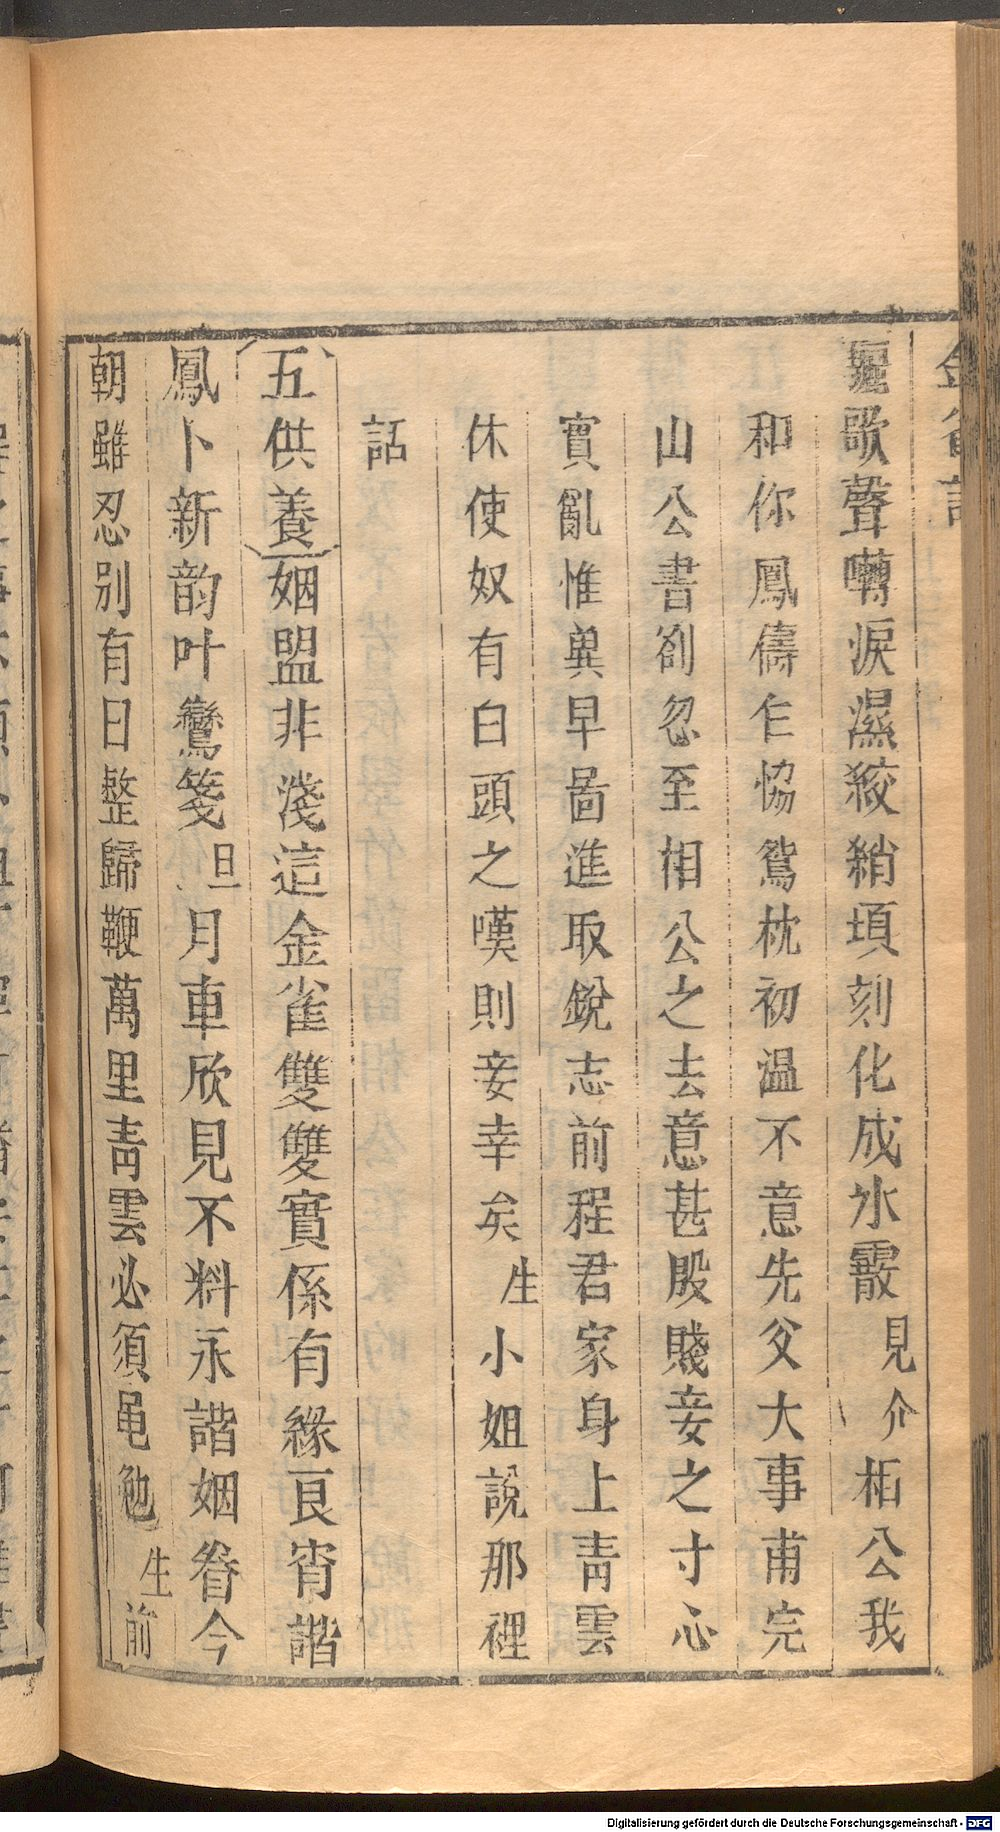 金雀記
驪歌聲囀淚濕絞綃頃刻化成氷霰見介相公我
和你鳳儔乍恊鴛枕初温不意先父大事甫完
山公書劄忽至相公之去意甚殷賤妾之寸心
實亂惟兾早啚進取銳志前程君家身上青雲
休使奴有白頭之嘆則妾幸矣生小姐說那裡
話
五供養姻盟非淺這金雀雙雙實係有緣良宵諧
鳳卜新韵叶鸞箋旦月車欣見不料永諧姻眷今
朝雖忍別有日整歸鞭萬里青雲必須黽勉生前
Digitalisierung gefördert durch die Deutsche Forschungsgemeinschaft - DFG